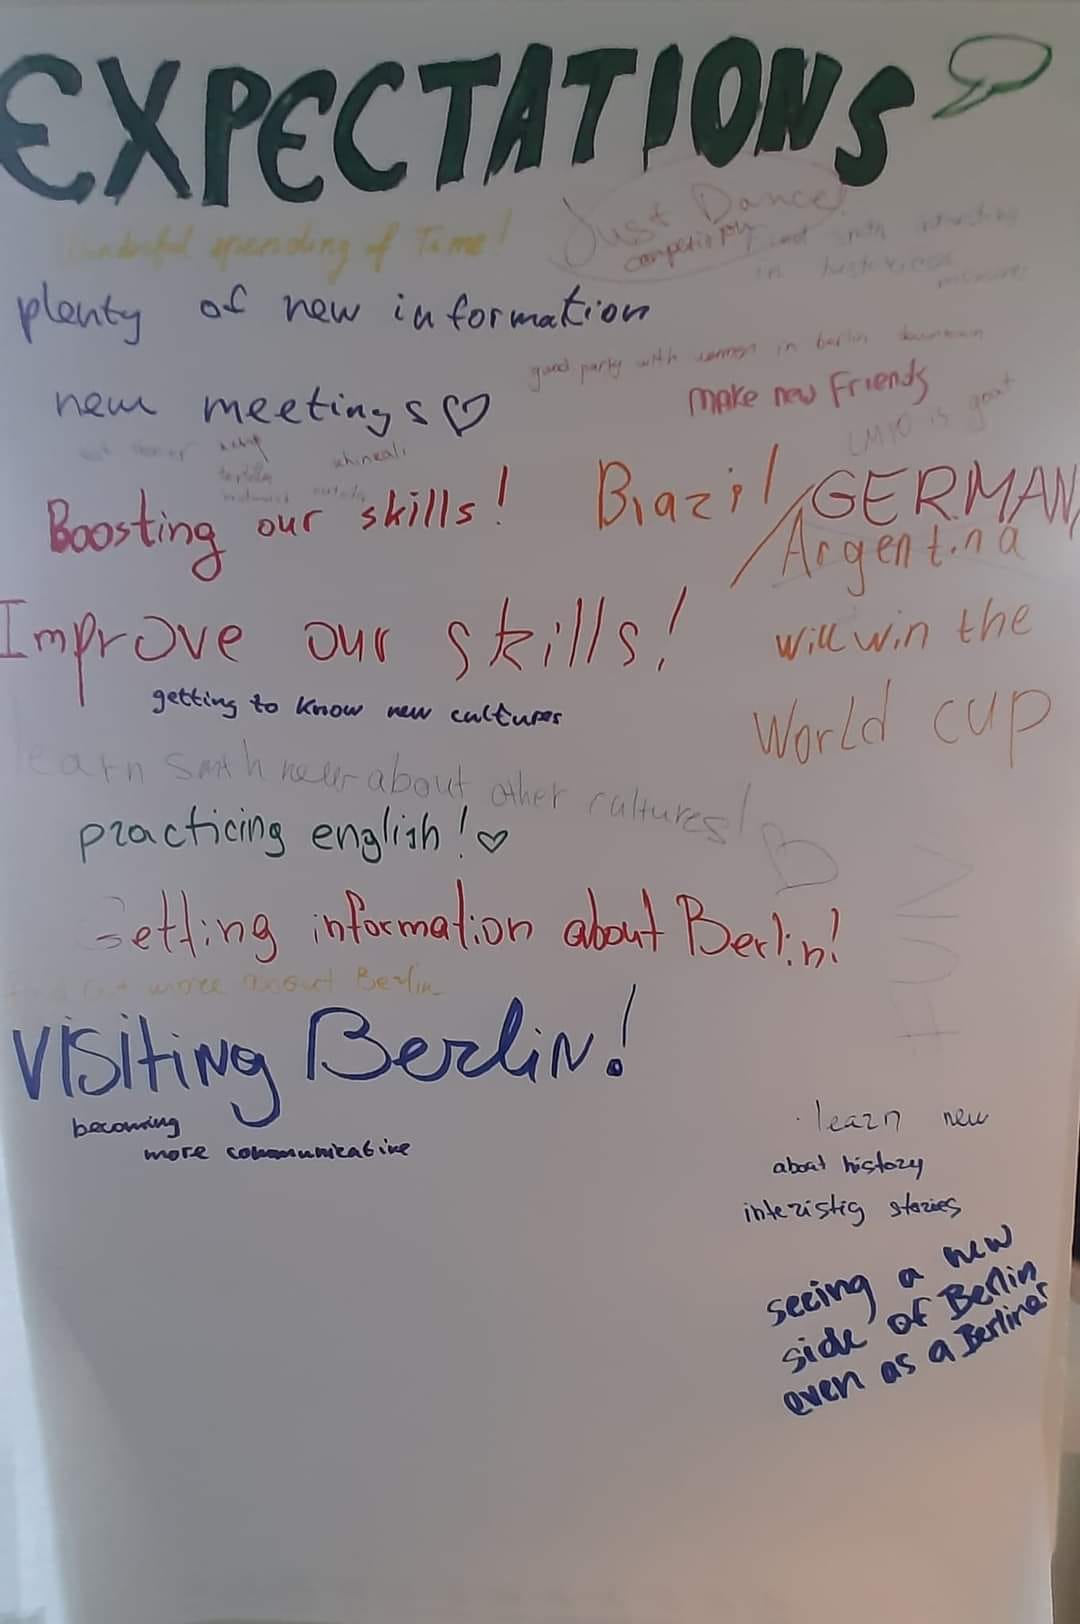 EXPECTATIONS
spending of Time!
Just Dance!
competition
plenty of new information
good party with women in berlin downtown
new meetings ♡
make new Friends
is goat
Boosting our skills!
Brazil / GERMANY
Argentina
will win the
World cup
Improve our skills!
getting to know new cultures
learn smth new about other cultures! ♡
practicing english! ♡
Getting information about Berlin!
more about Berlin
VISITING Berlin!
becoming
more communicative
learn new
about history
interistig stories
seeing a new
side of Berlin
even as a Berliner